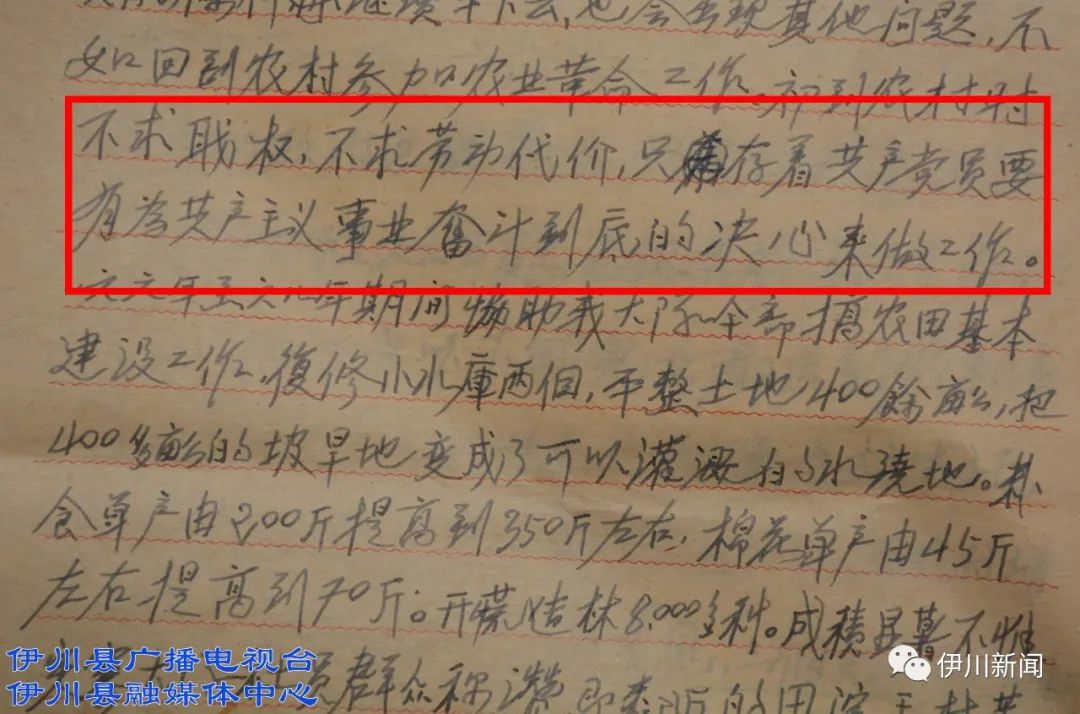 继续干下去,也会出现其他问题,不
如回到农村参加农业革命工作。初到农村时
不求职权,不求劳动代价,只存着共产党员要
有为共产主义事业奋斗到底的决心来做工作。
六六年至六八年期间協助我大队干部搞农田基本
建设工作,復修小水庫两個,平整土地400餘亩,把
400多亩的坡旱地变成了可以灌溉的水浇地。粮
食单产由200斤提高到350斤左右,棉花单产由45斤
左右提高到70斤。开荒造林8.000多种。成積显著不惟
员群众称讃
伊川县广播电视台
伊川县融媒体中心
伊川新闻